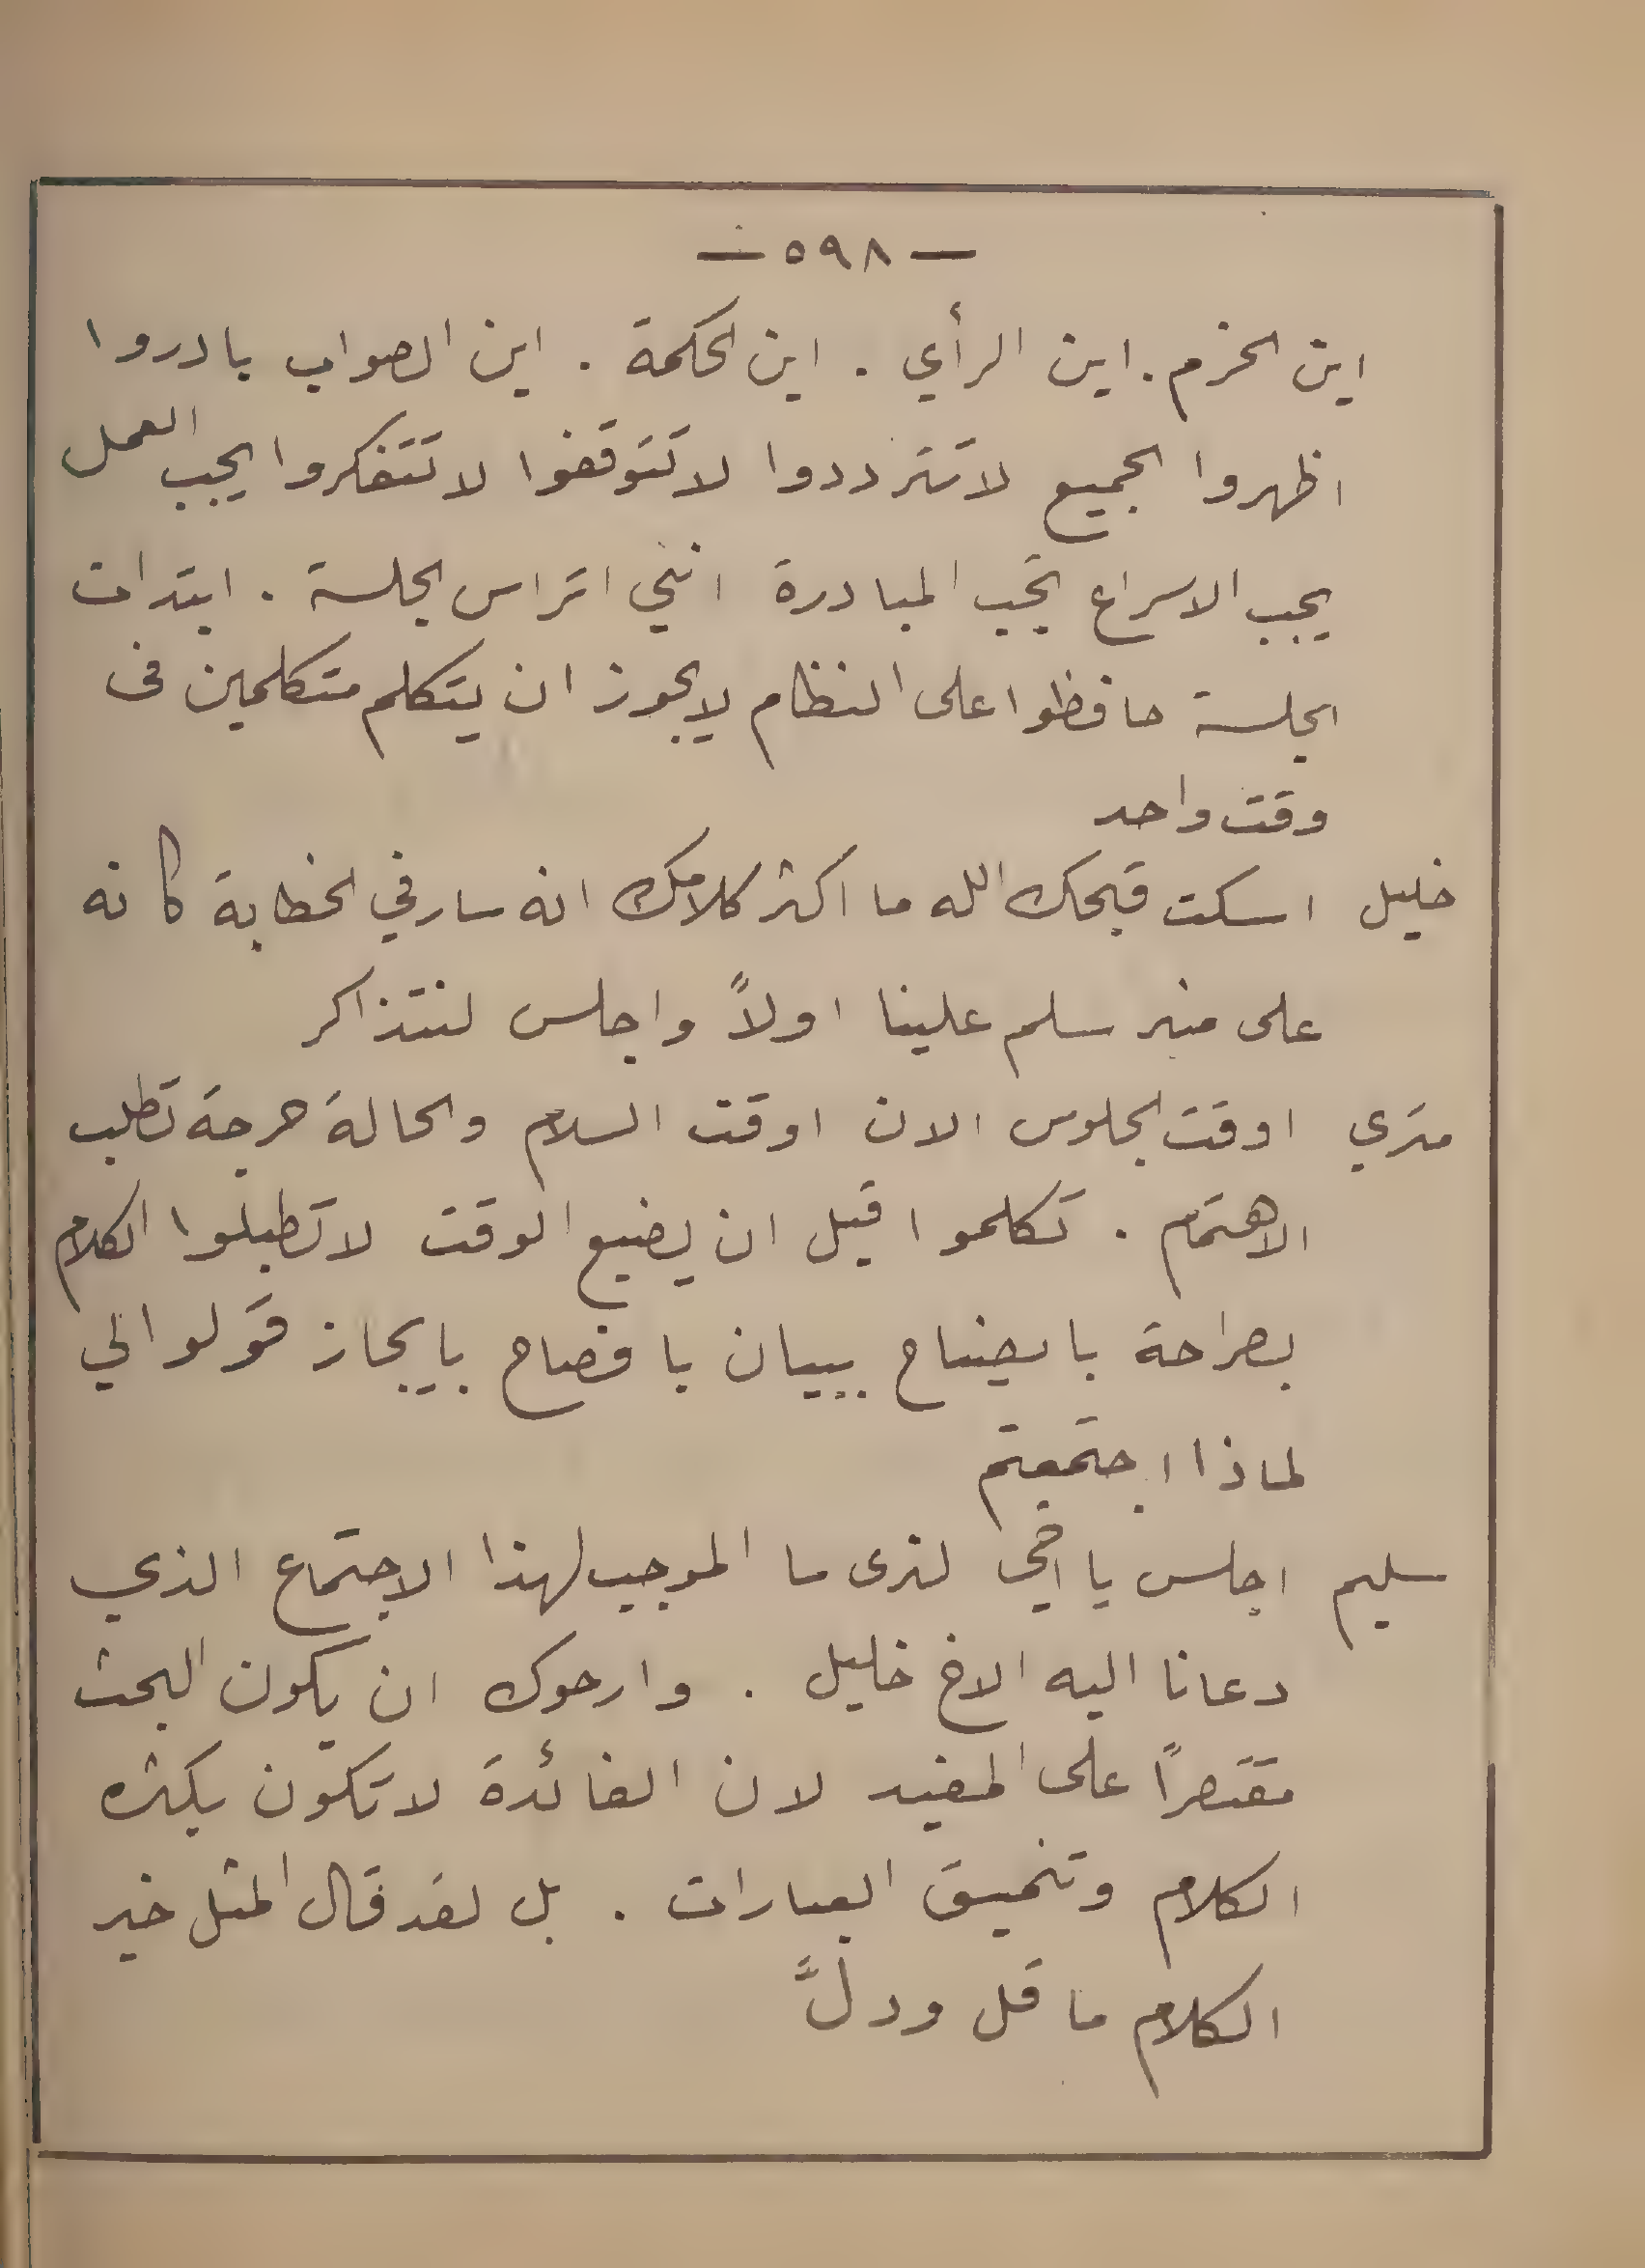 — ٥٩٨ —
اين الحزم . اين الرأي . اين الحكمة . اين الصواب بادروا
اظهروا الجميع لا تترددوا لا تتوقفوا لا تتفكروا يجب العمل
يجب الاسراع تجب المبادرة انني اتراس الجلسة . ابتدات
الجلسة حافظوا على النظام لا يجوز ان يتكلم متكلمين فى
وقت واحد
خليل اسكت قبحك الله ما اكثر كلامك انه سار في الخطابة كانه
على منبر سلم علينا اولاً واجلس لنتذاكر
متري اوقت الجلوس الان اوقت السلام والحالة حرجة تطلب
الاهتمام . تكلموا قبل ان يضيع الوقت لا تطيلوا الكلام
بصراحة بايضاح ببيان بافصاح بايجاز قولوا لي
لماذا اجتمعتم
سليم اجلس يا اخي لنرى ما الموجب لهذا الاجتماع الذي
دعانا اليه الاخ خليل . وارجوك ان يكون البحث
مقتصراً على المفيد لان الفائدة لا تكون بكثره
الكلام وتنميق العبارات . بل لقد قال المثل خير
الكلام ما قل ودلَّ